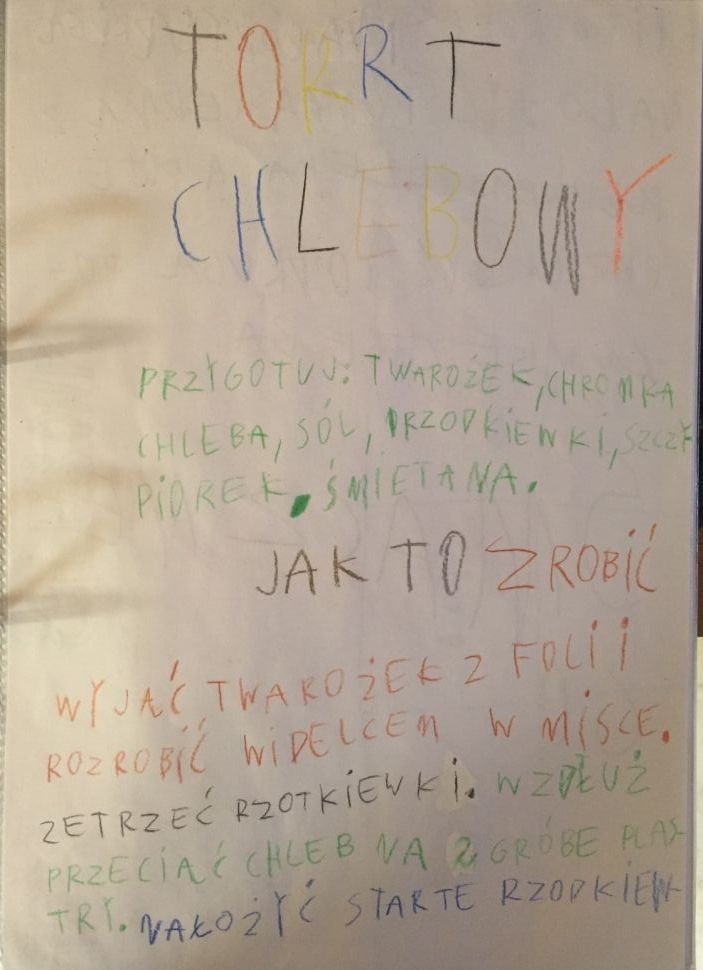 TORRT
CHLEBOWY
PRZYGOTUJ: TWAROŻEK, CHROMKA
CHLEBA, SÓL, RZODKIEWKI, SZCZY
PIOREK, ŚMIETANA.
JAK TO ZROBIĆ
WYJĄĆ TWAROŻEK Z FOLII I
ROZROBIĆ WIDELCEM W MISCE.
ZETRZEĆ RZOTKIEWKI. WZDŁUŻ
PRZECIĄĆ CHLEB NA 2 GRÓBE PLAS-
TRY. NAŁOŻYĆ STARTE RZODKIEWK